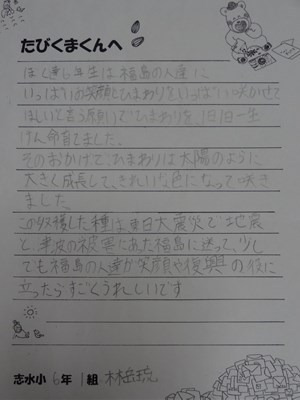 たびくまくんへ
ぼく達6年生は福島の人達に
いっぱいの笑顔とひまわりをいっぱい咲かせて
ほしいと言う願いでひまわりを、1日1日一生
けん命育てました。
そのおかげで、ひまわりは太陽のように
大きく成長して、きれいな色になって咲き
ました。
この収穫した種は東日大震災で、地震
と、津波の被害にあた福島に送って、少し
でも福島の人達が笑顔や復興の役に
立ったらすごくうれしいです
志水小6年1組 林